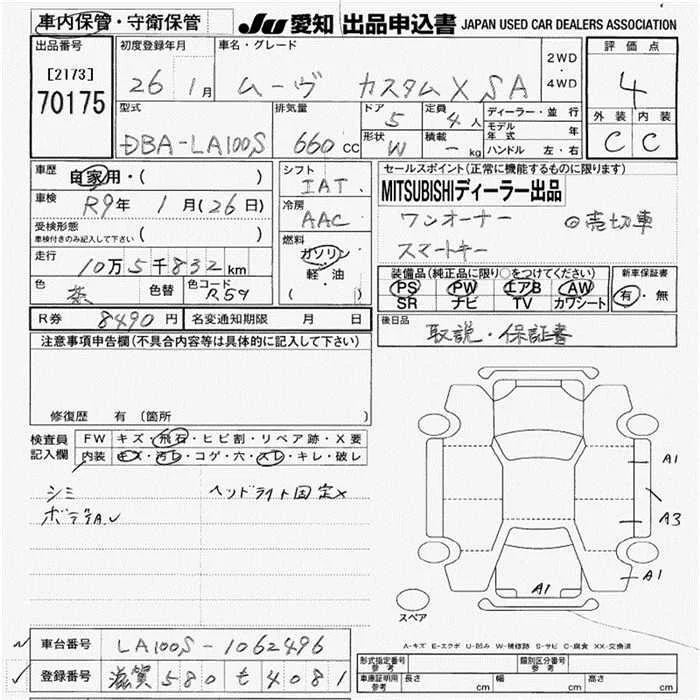 車内保管・守衛保管 JU 愛知 出品申込書 JAPAN USED CAR DEALERS ASSOCIATION
出品番号 初度登録年月 車名・グレード 評価点
[2173] 26 1月 ムーヴ カスタムX SA 2WD・4WD 4
70175 型式 排気量 ドア 5 定員 4人 ディーラー・並行 外装 内装
DBA-LA100S 660cc 形状 W 積載 -kg モデル年式 年 C C
ハンドル 左・右
車歴 自家用・( ) シフト IAT セールスポイント(正常に機能するものに限ります)
車検 R9年 1月(26日) 冷房 AAC MITSUBISHIディーラー出品
受検形態 車検付きのみ記入して下さい ( ) ワンオーナー ◎売切車
走行 10万5千832km 燃料 ガソリン・軽・油 ( ) スマートキー
色 茶 色替 色コード R59 装備品(純正品に限り○をつけてください) 新車保証書
PS PW エアB AW 有・無
SR ナビ TV カワシート
R券 8490円 名変通知期限 月 日 後日品 取説・保証書
注意事項申告欄(不具合内容等は具体的に記入して下さい)
修復歴 有(箇所
検査員記入欄 FW キズ・飛石・ヒビ割・リペア跡・X要
内装 キズ・汚レ・コゲ・穴・スレ・キレ・破レ
シミ ヘッドライト固定×
A1
A3
A1
A1
スペア
A-キズ E-エクボ U-凹み W-補修跡 S-サビ C-腐食 XX-交換済
車台番号 LA100S-1062496
登録番号 滋賀 580 も 4081
形式指定番号 参考 類別区分番号 参考
車庫証明用 参考 長さ cm 幅 cm 高さ cm